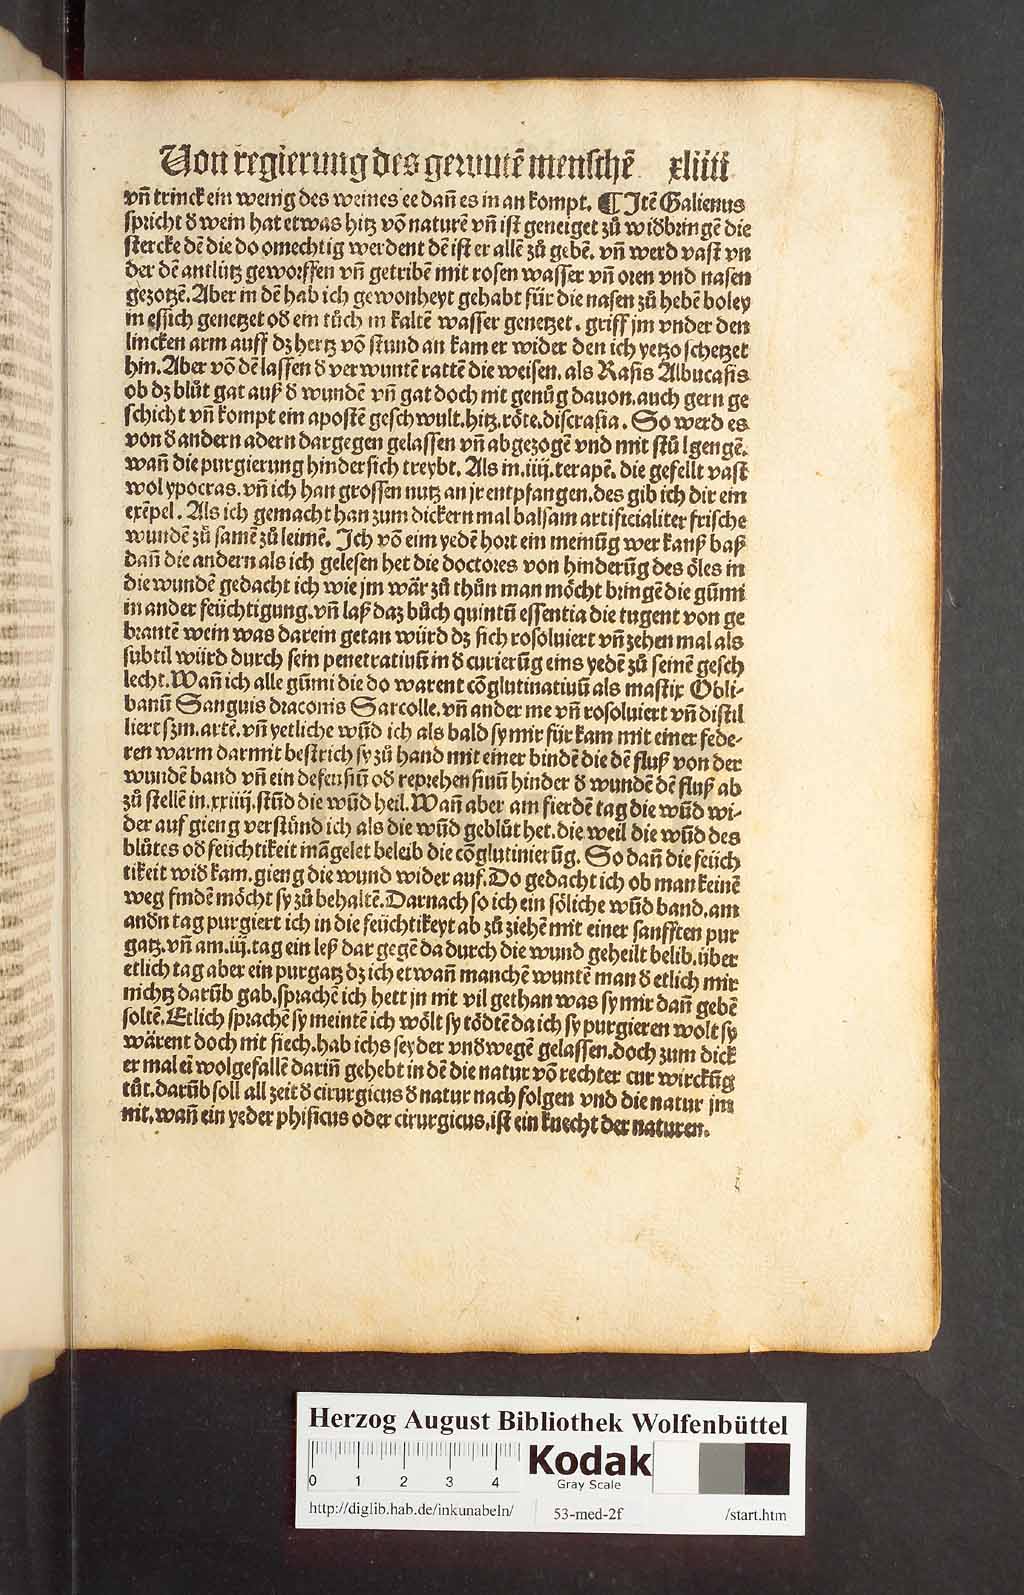 Von regierung des gewuntē menschē xliiii
vn̄ trinck ein wenig des weines ee dan̄ es in an kompt. ¶ Itē Galienus
spricht ð wein hat etwas hitz vō naturē vn̄ ist geneiget zů widbringē die
stercke dē die do omechtig werdent dē ist er allē zů gebē. vn̄ werd vast vn
der dē antlütz geworffen vn̄ getribē mit rosen wasser vn̄ oren vnd nasen
gezotzē. Aber in dē hab ich gewonheyt gehabt für die nasen zů hebē boley
in essich genetzet oð ein tůch in kaltē wasser genetzet. griff jm vnder den
lincken arm auff dz hertz vō stund an kam er wider den ich yetzo schetzet
hin. Aber vō dē lassen ð verwuntē rattē die weisen. als Rasis Albucasis
ob dz blůt gat auß ð wundē vn̄ gat doch nit genůg dauon. auch gern ge
schicht vn̄ kompt ein apostē geschwult. hitz. röte. discrasia. So werd es
von ð andern adern dargegen gelassen vn̄ abgezogē vnd mit stůlgengē.
wan̄ die purgierung hindersich treybt. Als in. iiij. terapē. die gefellt vast
wol ypocras. vn̄ ich han grossen nutz an jr entpfangen. des gib ich dir ein
exēpel. Als ich gemacht han zum dickern mal balsam artificialiter frische
wundē zů samē zů leimē. Ich vō eim yedē hort ein meinūg wer kanß baß
dan̄ die andern als ich gelesen het die doctores von hinderūg des öles in
die wundē gedacht ich wie jm wär zů thůn man möcht bringē die gūmi
in ander feüchtigung. vn̄ laß daz bůch quintū essentia die tugent von ge
brantē wein was darein getan würd dz sich rosoluiert vn̄ zehen mal als
subtil würd durch sein penetratiuū in ð curierūg eins yedē zů seinē gesch
lecht. Wan̄ ich alle gūmi die do warent cōglutinatiuū als mastix Obli-
banū Sanguis draconis Sarcolle. vn̄ ander me vn̄ rosoluiert vn̄ distil
liert szm. artē. vn̄ yetliche wūd ich als bald sy mir für kam mit einer fede-
ren warm darmit bestrich sy zů hand mit einer bindē die dē fluß von der
wundē band vn̄ ein defensiū oð reprehensiuū hinder ð wundē dē fluß ab
zů stellē in. xxiiij. stūd die wūd heil. Wan̄ aber am fierdē tag die wūd wi-
der auf gieng verstůnd ich als die wūd geblůt het. die weil die wūd des
blůtes oð feüchtikeit māgelet beleib die cōglutinierūg. So dan̄ die feüch
tikeit wið kam. gieng die wund wider auf. Do gedacht ich ob man keinē
weg findē möcht sy zů behaltē. Darnach so ich ein söliche wūd band. am
andn tag purgiert ich in die feüchtikeyt ab zů ziehē mit einer sanfften pur
gatz. vn̄ am. iij. tag ein leß dar gegē da durch die wund geheilt belib. über
etlich tag aber ein purgatz dz ich etwan̄ manchē wuntē man ð etlich mir
nichtz darūb gab. sprachē ich hett jn nit vil gethan was sy mir dan̄ gebē
soltē. Etlich sprachē sy meintē ich wölt sy tödtē da ich sy purgieren wolt sy
wärent doch nit siech. hab ichs seyder vnð wegē gelassen. doch zum dick
er mal eī wolgefallē darin̄ gehebt in dē die natur vō rechter cur wirckūg
tůt. darūb soll all zeit ð cirurgicus ð natur nach folgen vnd die natur jm
nit. wan̄ ein yeder phisicus oder cirurgicus. ist ein knecht der naturen.
Herzog August Bibliothek Wolfenbüttel
0 1 2 3 4
Kodak
Gray Scale
http://diglib.hab.de/inkunabeln/ 53-med-2f /start.htm